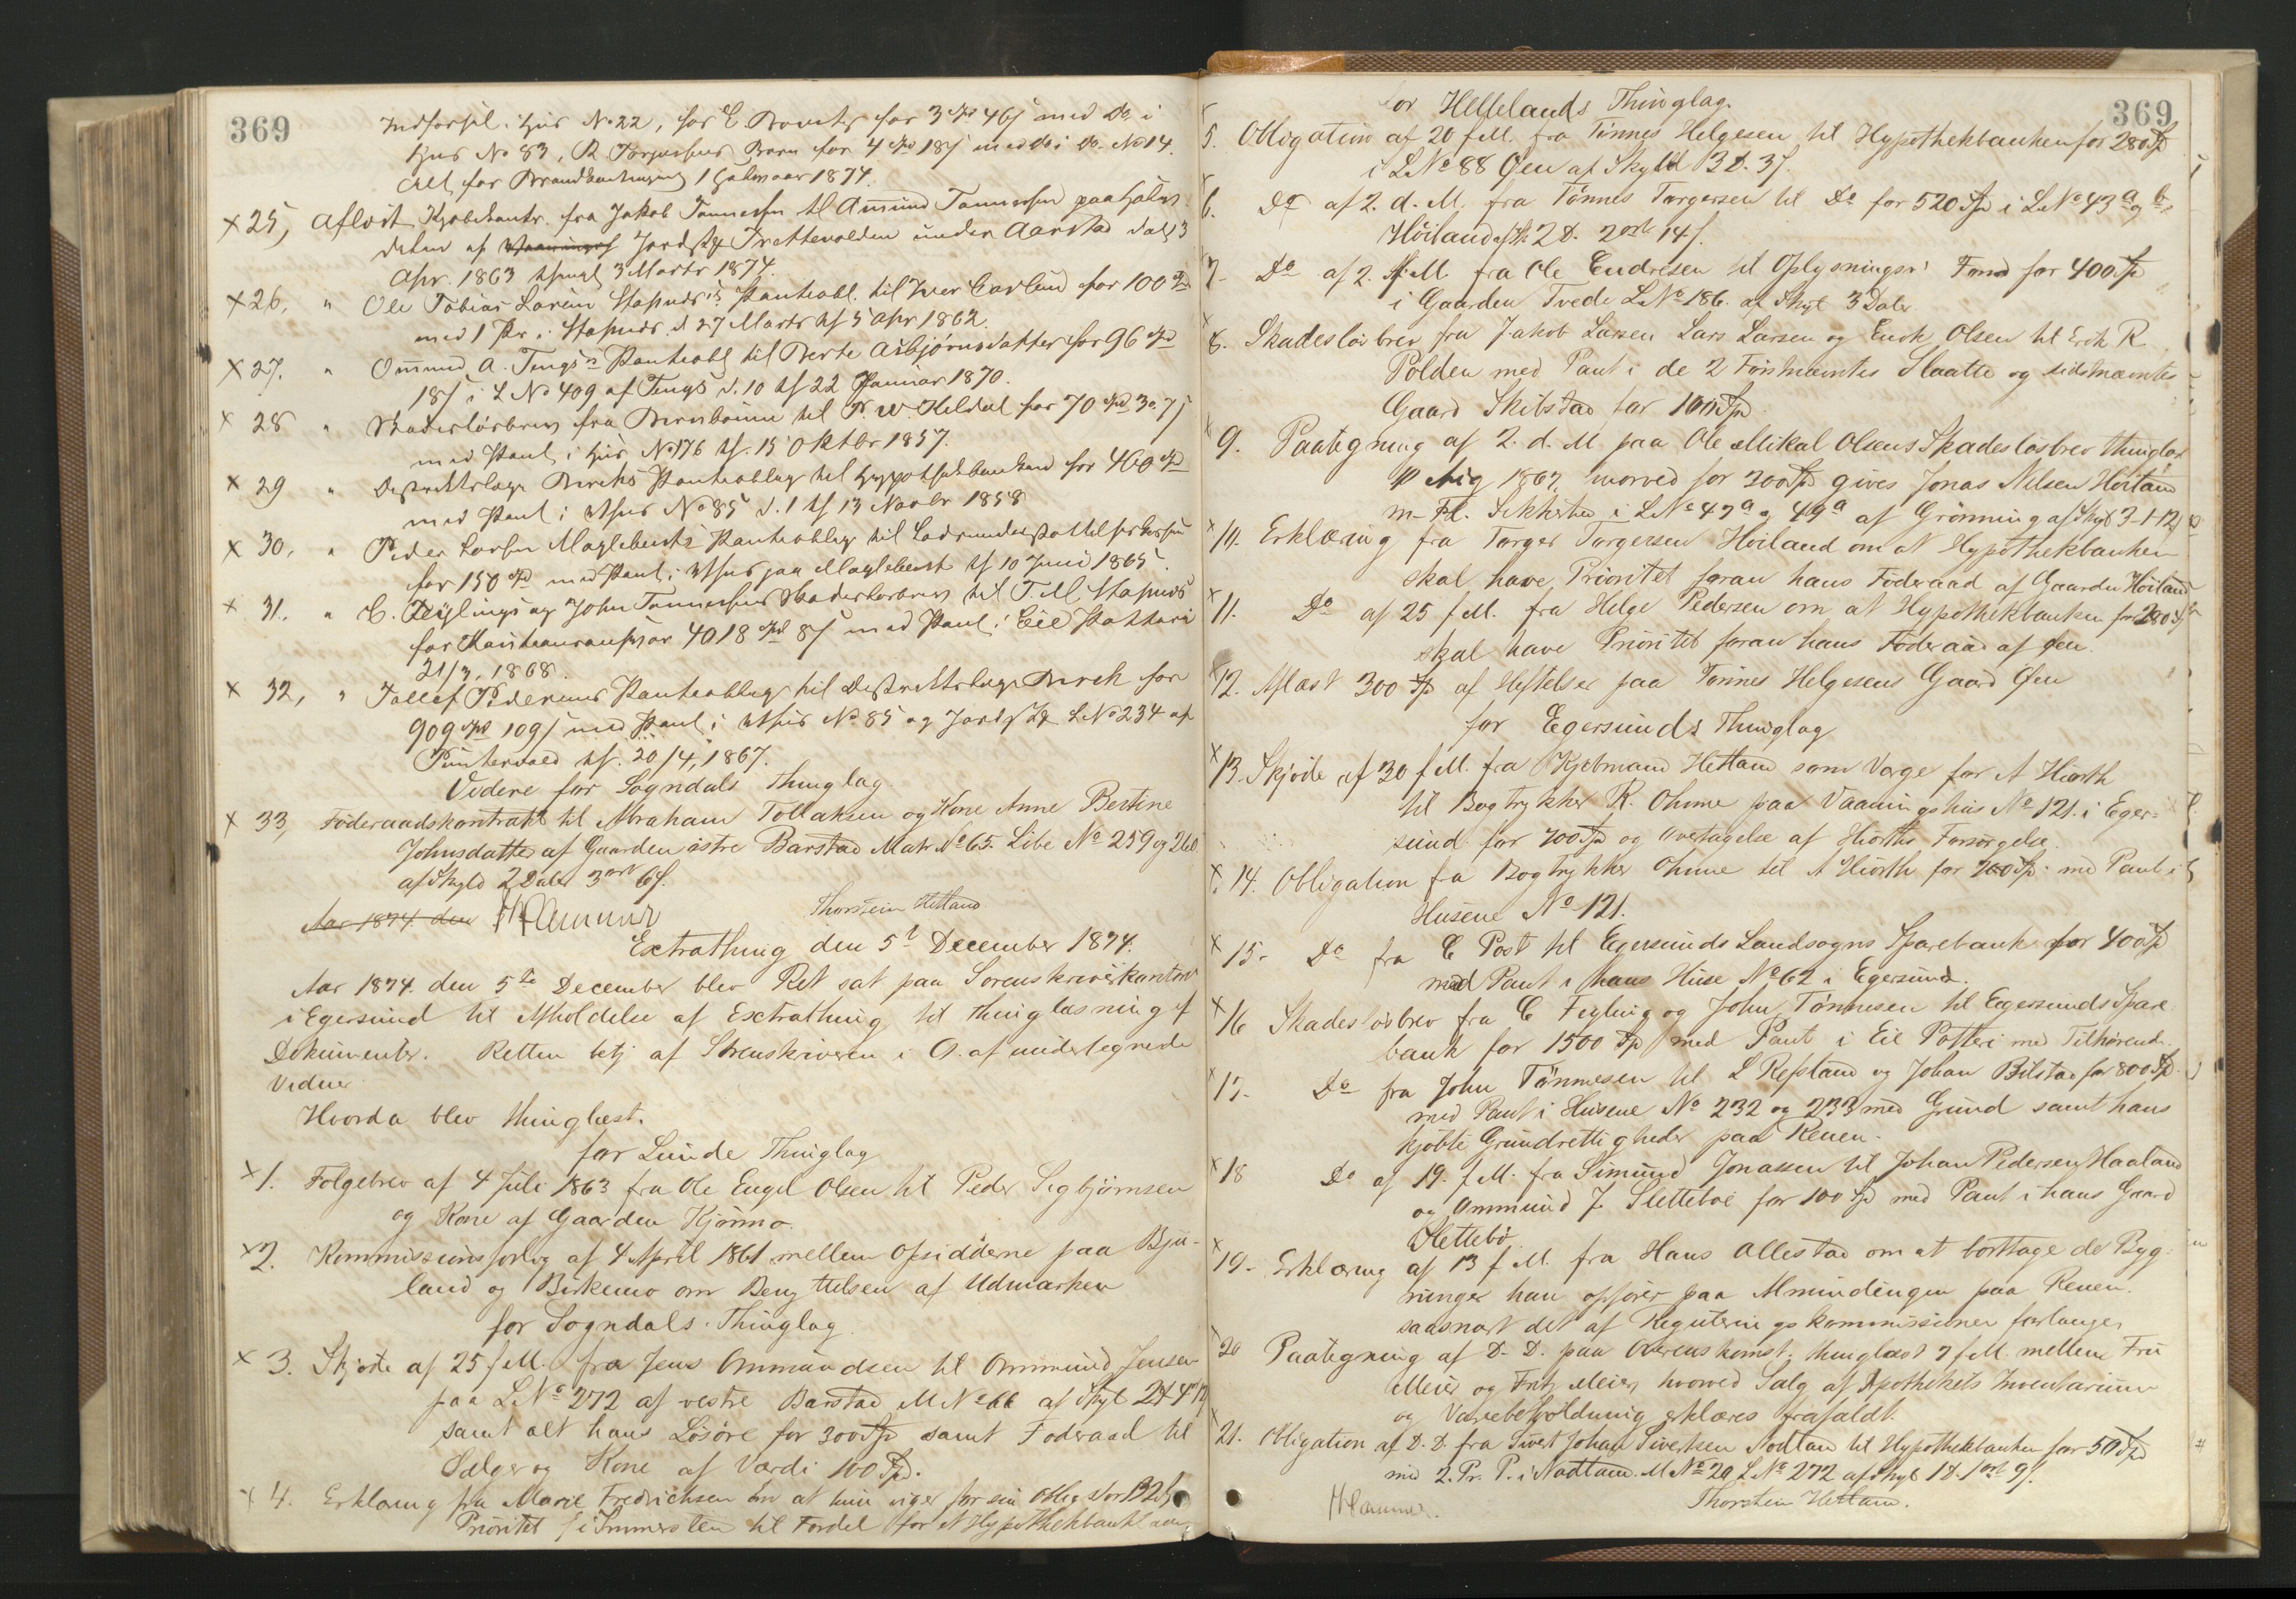 369
Indførsel i Huus No 22, for E for 3 Spd 46 ſ med Do i
Huus No 83, R Børn for 4 Spd 18 ſ med do i do No 14.
alt for 1 Halvaar 1874.
x 25, Aflæst Kjøbekontr. fra Jakob Tønnessen til Amund Tønnessen paa Halv
delen af Jordst Trettevolden under Aarstad dat 3
Apr. 1863 3 Marts 1874.
x 26, " Ole Tobias Larsen Stapnes's Panteobl. til Iver Carlund for 100 Spd
med 1 Pr i Stapnes d 27 Marts tl 5 Apr 1862.
x 27. " Ommund A. Tengs's Panteobl til Berte Asbjørnsdatter for 96 Spd
18 ſ i L No 409 af Tengs d. 10 tl 22 Januar 1870.
x 28 " Skadesløsbrev fra til P. W Feldal for 70 Spd 3 o. 7 ſ
med Pant i Huus No 176 tl. 15 Oktbr 1857.
x 29 " Distriktslæge Birchs Panteoblig til Hypothekbanken for 460 Spd
med Pant i Huus No 85 d. 1 tl 13 Novbr 1858
x 30, " Peder Larsen Maglebersts Panteoblig til
for 150 Spd med Pant i Huus paa Magleberst tl 10 Juni 1865.
x 31, " C. Feylings og John Tønnessens Skadesløsbrev til T. M Stapnes
for 4018 Spd 8 ſ med Pant i Eie Potteri
21/3, 1868.
x 32, " Tollef Pedersens Panteoblig til Distriktslæge Birch for
909 Spd 109 ſ med Pant i Huus No 85 og Jordst L No 234 af
Puntervold tl. 20/4, 1867.
Videre for Sogndals Thinglag.
x 33, Føderaadskontrakt til Abraham Tollaksen og Kone Anne Bertine
Johnsdatter af Gaarden østre Barstad Matr No 65. Løbe No 259 og 260
af Skyld 2 Daler 3 ort 6 ſ.
Aar 1874 den Hammer Thorstein Hetland
Extrathing den 5t December 1874.
Aar 1874. den 5te December blev Ret sat paa Sorenskriverkontoret
i Egersund til Afholdelse af Extrathing til Thinglæsning af
Dokumenter. Retten betj af Sorenskriveren i O. af undertegnede
Vidner
Hvorda blev thinglæst.
for Lunde Thinglag
x 1. Følgebrev af 4 Juli 1863 fra Ole Engel Olsen til Peder Segbjørnsen
og Kone af Gaarden Kjønmo.
x 2. Kommissionsforlig af 4 April 1861 mellem Opsidderne paa Bju-
land og Birkemo om Benyttelsen af Udmarken
for Sogndals Thinglag
x 3. Skjøte af 25 f M. fra Jens Ommundsen til Ommund Jensen
paa L No 272 af vestre Barstad M No 66 af Skyl
samt alt hans Løsøre for 300 Spd samt Føderaad til
Sælger og Kone af Værdi 100 Spd.
x 4. Erklæring fra Marie Fredrichsen Em at hun viger for sin Oblig stor
Prioritet i Immersten til Fordel for et Hypothekbank
369
for Hellelands Thinglag.
5. Obligation af 20 f M. fra Tønnes Helgesen til Hypothekbanken for 280 Spd
i L No 88 Øen af Skyld 3 D. 3 ſ.
6. Do af 2. d. M. fra Tønnes Torgersen til Do for 520 Spd i L No 43 a og b
Høiland af Sk. 2 D. 2 ort 14 ſ.
7. Do af 2. f. M. fra Ole Endresen til Oplysningsv. Fond for 400 Spd
i Gaarden Tvede L No 186. af Skyl 3 Daler
x 8. Skadesløsbrev fra Jakob Larsen Lars Larsen og Enok Olsen til Erik R
Polden med Pant i de 2 Førstnævntes Slaatte og sidstnævntes
Gaard Skibstad for 100 Spd
x 9. Paategning af 2. d. M. paa Ole Mikal Olsens Skadesløsbrev thinglæst
10 Aug 1867 hvorved for 300 Spd gives Jonas Nilsen Høiland
m- Fl. Sikkerhed i L No 47 a og 49 a af Grønning af Skyl 3-1-12
x 10. Erklæring fra Torger Torgersen Høiland om at Hypothekbanken
skal have Prioritet foran hans Føderaad af Gaarden Høiland
x 11. Do af 25 f M. fra Helge Pedersen om at Hypothekbanken for 280 Spd
skal have Prioritet foran hans Føderaad af Øen.
x 12. Aflæst 300 Spd af Heftelser paa Tønnes Helgesens Gaard Øen
for Egersunds Thinglag
x 13. Skjøde af 30 f M. fra Kjøbmand Hetland som Værge for A Hiorth
til Bogtrykker R. Ohme paa Vaaningshus No 121. i Eger-
sund for 700 Spd og Overtagelse af Hiorths Forsørgelse.
x 14. Obligation fra Bogtrykker Ohme til A Hiorth for 700 Spd. med Pant i
Husene No 121.
x 15. Do fra C Post til Egersunds Landsogns Sparebank for 400 Spd
med Pant i hans Huse No 62 i Egersund.
x 16 Skadesløsbrev fra C Feyling og John Tønnesen til Egersunds Spare
bank for 1500 Spd med Pant i Eie Potteri med Tilhørende.
x 17. Do fra John Tønnesen til L Refsland og Johan Bilstad for 800 Spd.
med Pant i Husene No 232 og 233 med Grund samt hans
kjøbte Grundrettigheder paa Renen.
x 18 Do af 19. f. M. fra Simund Jonassen til Johan Pedersen Haaland
og Ommund J. Sletteboe for 100 Spd med Pant i hans Gaard
Slettebø
x 19. Erklæring af 13 f M. fra Hans Ollestad om at borttage de Byg-
ninger han opfører paa Almindingen paa Renen.
saasnart det af Reguleringskommissionen forlanges
x 20 Paategning af D. D. paa Overenskomst thinglæst 7 f M. mellem Fru
Meier og Fritz Meier hvorved Salg af Apothekets Inventarium
og Varebeholdning erklæres frafaldt.
x 21. Obligation af D. D. fra Sivert Johan Sivertsen Nodland til Hypothekbanken for 50 Spd
med 2. Pr. P. i Nodland. M No 20 L No 272 af Skyl 1 D. 1 ort 9 ſ.
Hammer. Thorstein Hetland.